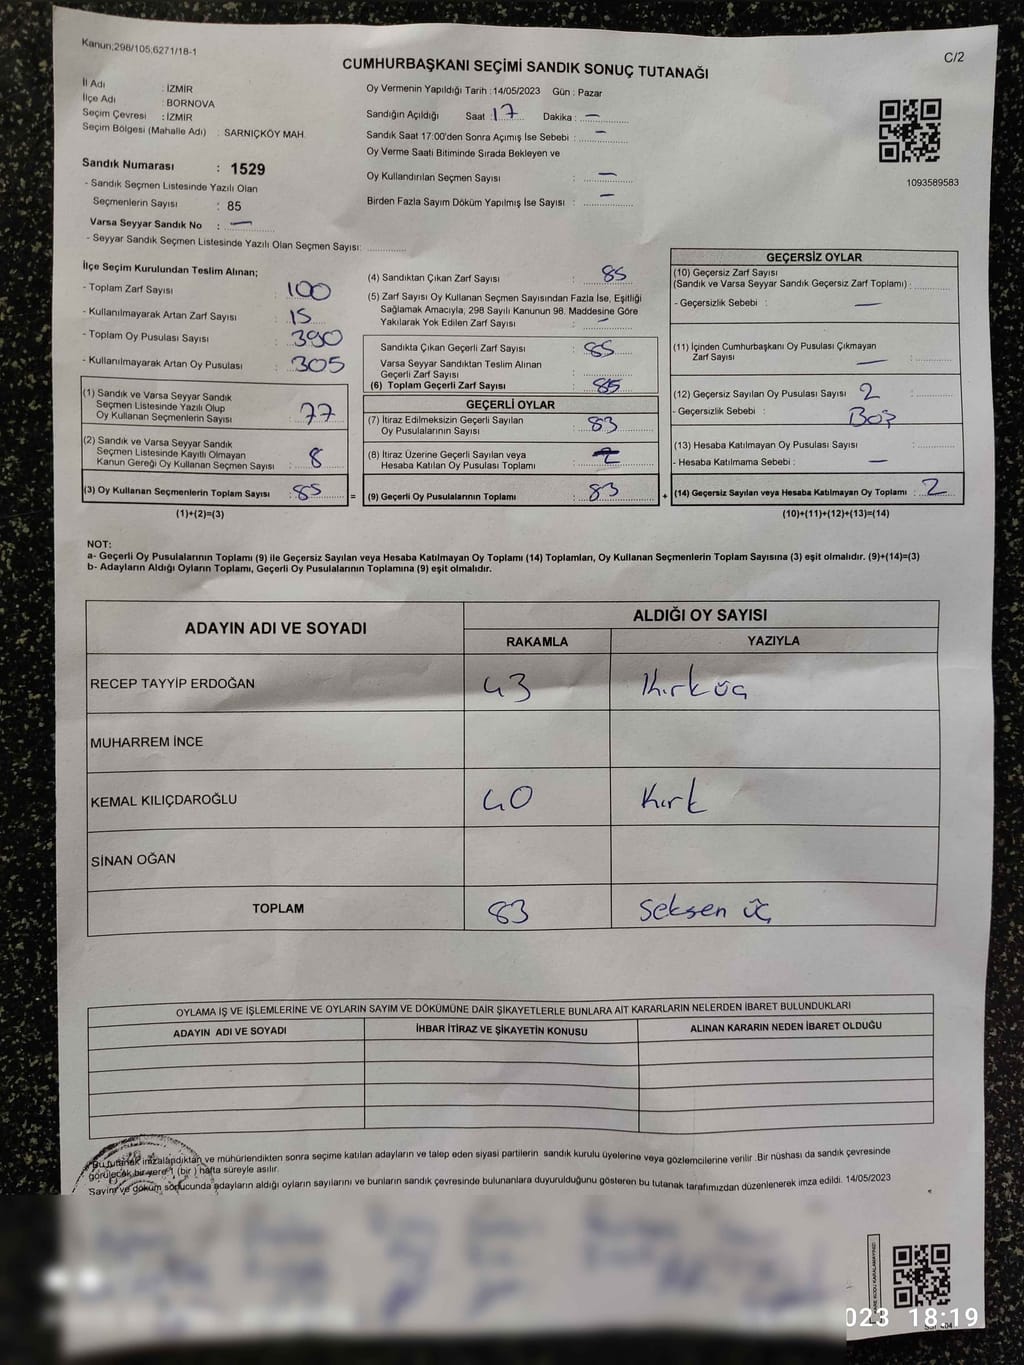 Kanun:298/105,6271/18-1
C/2
CUMHURBAŞKANI SEÇİMİ SANDIK SONUÇ TUTANAĞI
İl Adı : İZMİR
İlçe Adı : BORNOVA
Seçim Çevresi : İZMİR
Seçim Bölgesi (Mahalle Adı) : SARNIÇKÖY MAH.
Oy Vermenin Yapıldığı Tarih :14/05/2023 Gün : Pazar
Sandığın Açıldığı Saat : 17 Dakika : —
Sandık Saat 17:00'den Sonra Açımış İse Sebebi : —
Oy Verme Saati Bitiminde Sırada Bekleyen ve
Oy Kullandırılan Seçmen Sayısı : —
Birden Fazla Sayım Döküm Yapılmış İse Sayısı : —
1093589583
Sandık Numarası : 1529
- Sandık Seçmen Listesinde Yazılı Olan
Seçmenlerin Sayısı : 85
Varsa Seyyar Sandık No : —
- Seyyar Sandık Seçmen Listesinde Yazılı Olan Seçmen Sayısı:
İlçe Seçim Kurulundan Teslim Alınan;
- Toplam Zarf Sayısı : 100
- Kullanılmayarak Artan Zarf Sayısı : 15
- Toplam Oy Pusulası Sayısı : 390
- Kullanılmayarak Artan Oy Pusulası : 305
(1) Sandık ve Varsa Seyyar Sandık
Seçmen Listesinde Yazılı Olup
Oy Kullanan Seçmenlerin Sayısı : 77
(2) Sandık ve Varsa Seyyar Sandık
Seçmen Listesinde Kayıtlı Olmayan
Kanun Gereği Oy Kullanan Seçmen Sayısı : 8
(3) Oy Kullanan Seçmenlerin Toplam Sayısı : 85
(1)+(2)=(3)
(4) Sandıktan Çıkan Zarf Sayısı : 85
(5) Zarf Sayısı Oy Kullanan Seçmen Sayısından Fazla İse, Eşitliği
Sağlamak Amacıyla, 298 Sayılı Kanunun 98. Maddesine Göre
Yakılarak Yok Edilen Zarf Sayısı : —
Sandıkta Çıkan Geçerli Zarf Sayısı : 85
Varsa Seyyar Sandıktan Teslim Alınan
Geçerli Zarf Sayısı :
(6) Toplam Geçerli Zarf Sayısı : 85
GEÇERLİ OYLAR
(7) İtiraz Edilmeksizin Geçerli Sayılan
Oy Pusulalarının Sayısı : 83
(8) İtiraz Üzerine Geçerli Sayılan veya
Hesaba Katılan Oy Pusulası Toplamı :
= (9) Geçerli Oy Pusulalarının Toplamı : 83
GEÇERSİZ OYLAR
(10) Geçersiz Zarf Sayısı
(Sandık ve Varsa Seyyar Sandık Geçersiz Zarf Toplamı) :
- Geçersizlik Sebebi : —
(11) İçinden Cumhurbaşkanı Oy Pusulası Çıkmayan
Zarf Sayısı — :
(12) Geçersiz Sayılan Oy Pusulası Sayısı : 2
- Geçersizlik Sebebi : Boş
(13) Hesaba Katılmayan Oy Pusulası Sayısı :
- Hesaba Katılmama Sebebi : —
+ (14) Geçersiz Sayılan veya Hesaba Katılmayan Oy Toplamı : 2
(10)+(11)+(12)+(13)=(14)
NOT:
a- Geçerli Oy Pusulalarının Toplamı (9) ile Geçersiz Sayılan veya Hesaba Katılmayan Oy Toplamı (14) Toplamları, Oy Kullanan Seçmenlerin Toplam Sayısına (3) eşit olmalıdır. (9)+(14)=(3)
b- Adayların Aldığı Oyların Toplamı, Geçerli Oy Pusulalarının Toplamına (9) eşit olmalıdır.
ADAYIN ADI VE SOYADI
ALDIĞI OY SAYISI
RAKAMLA YAZIYLA
RECEP TAYYİP ERDOĞAN 43 Kırk üç
MUHARREM İNCE
KEMAL KILIÇDAROĞLU 40 Kırk
SİNAN OĞAN
TOPLAM 83 Seksen üç
OYLAMA İŞ VE İŞLEMLERİNE VE OYLARIN SAYIM VE DÖKÜMÜNE DAİR ŞİKAYETLERLE BUNLARA AİT KARARLARIN NELERDEN İBARET BULUNDUKLARI
ADAYIN ADI VE SOYADI İHBAR İTİRAZ VE ŞİKAYETİN KONUSU ALINAN KARARIN NEDEN İBARET OLDUĞU
Bu tutanak imzalandıktan ve mühürlendikten sonra seçime katılan adayların ve talep eden siyasi partilerin sandık kurulu üyelerine veya gözlemcilerine verilir .Bir nüshası da sandık çevresinde
görülecek bir yere 1 (bir ) hafta süreyle asılır.
Sayım ve döküm sonucunda adayların aldığı oyların sayılarını ve bunların sandık çevresinde bulunanlara duyurulduğunu gösteren bu tutanak tarafımızdan düzenlenerek imza edildi. 14/05/2023
023 18:19